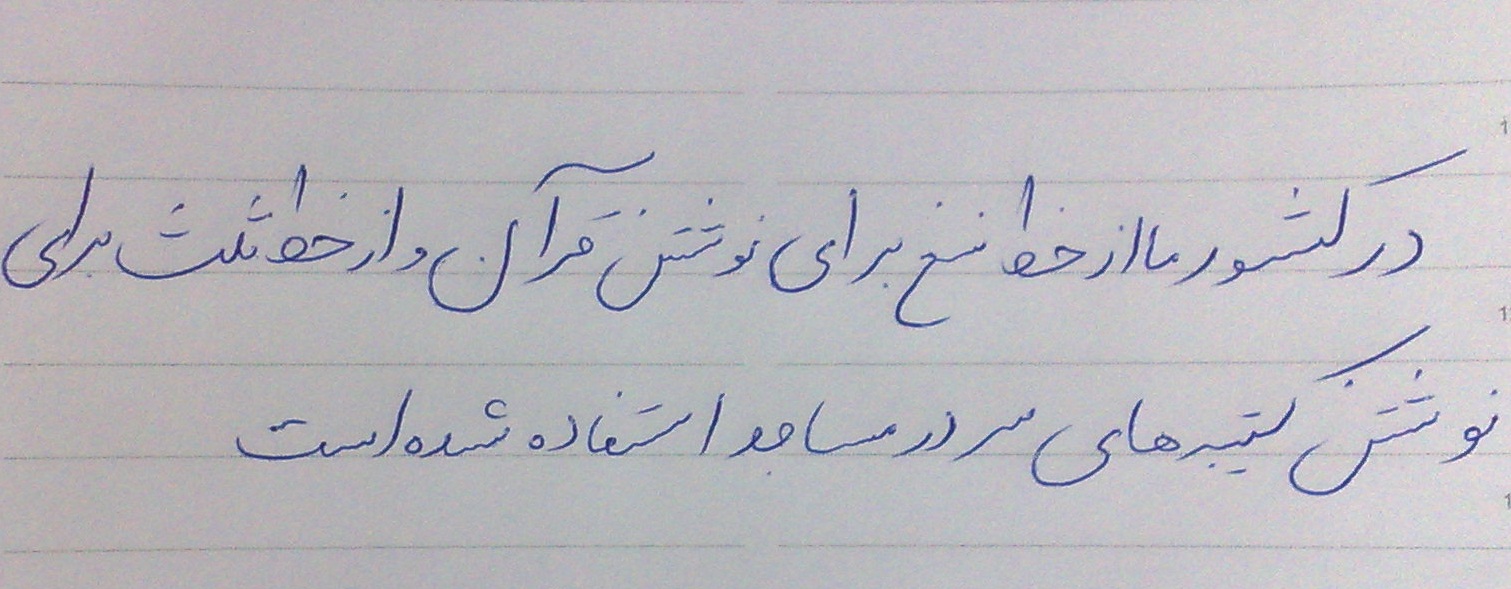 در کشور ما از خط نسخ برای نوشتن قرآن و از خط ثلث برای
نوشتن کتیبه‌های سردر مساجد استفاده شده است